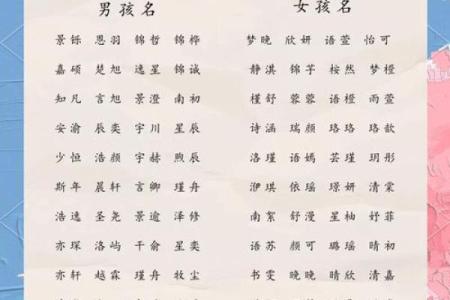 男孩名
景铄 恩羽 锦哲 锦桦
嘉硕 楚旭 逸星 锦诚
知凡 言旭 景澄 南初
安渝 辰奕 宇川 星辰
少恒 浩颜 宇赫 煦辰
斯年 晨轩 言卿 瑾舟
浩逸 圣尧 景逾 泽修
亦琛 洛屿 千俞 星奕
亦轩 越霖 瑾舟 牧尘
女孩名
梦晚 欣妍 语萱 怡可
静淇 锦芓 桉然 梦橙
槿舒 蓉蓉 语橙 雨萱
诗涵 瑞颜 珞珞 珞歆
洛瑾 语嫣 芸瑾 玥彤
洢琪 依瑶 璟妍 清棠
南絮 舒漫 星柚 妤菲
语苏 颜可 璐瑶 晴初
书雯 晚晚 晴欣 清嘉